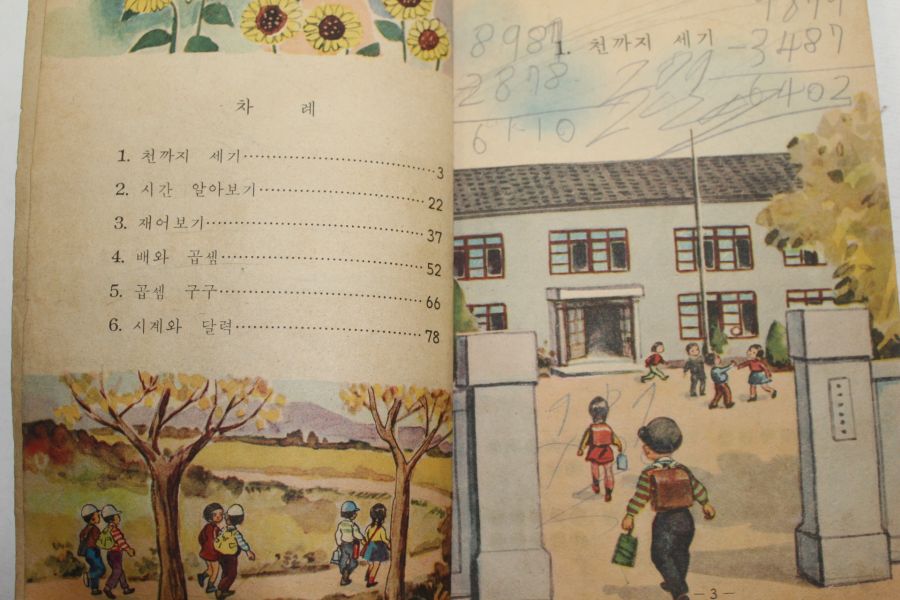 차 례
1. 천까지 세기 3
2. 시간 알아보기 22
3. 재어보기 37
4. 배와 곱셈 52
5. 곱셈 구구 66
6. 시계와 달력 78
1. 천까지 세기
8987
2878
-3487
6402
- 3 -